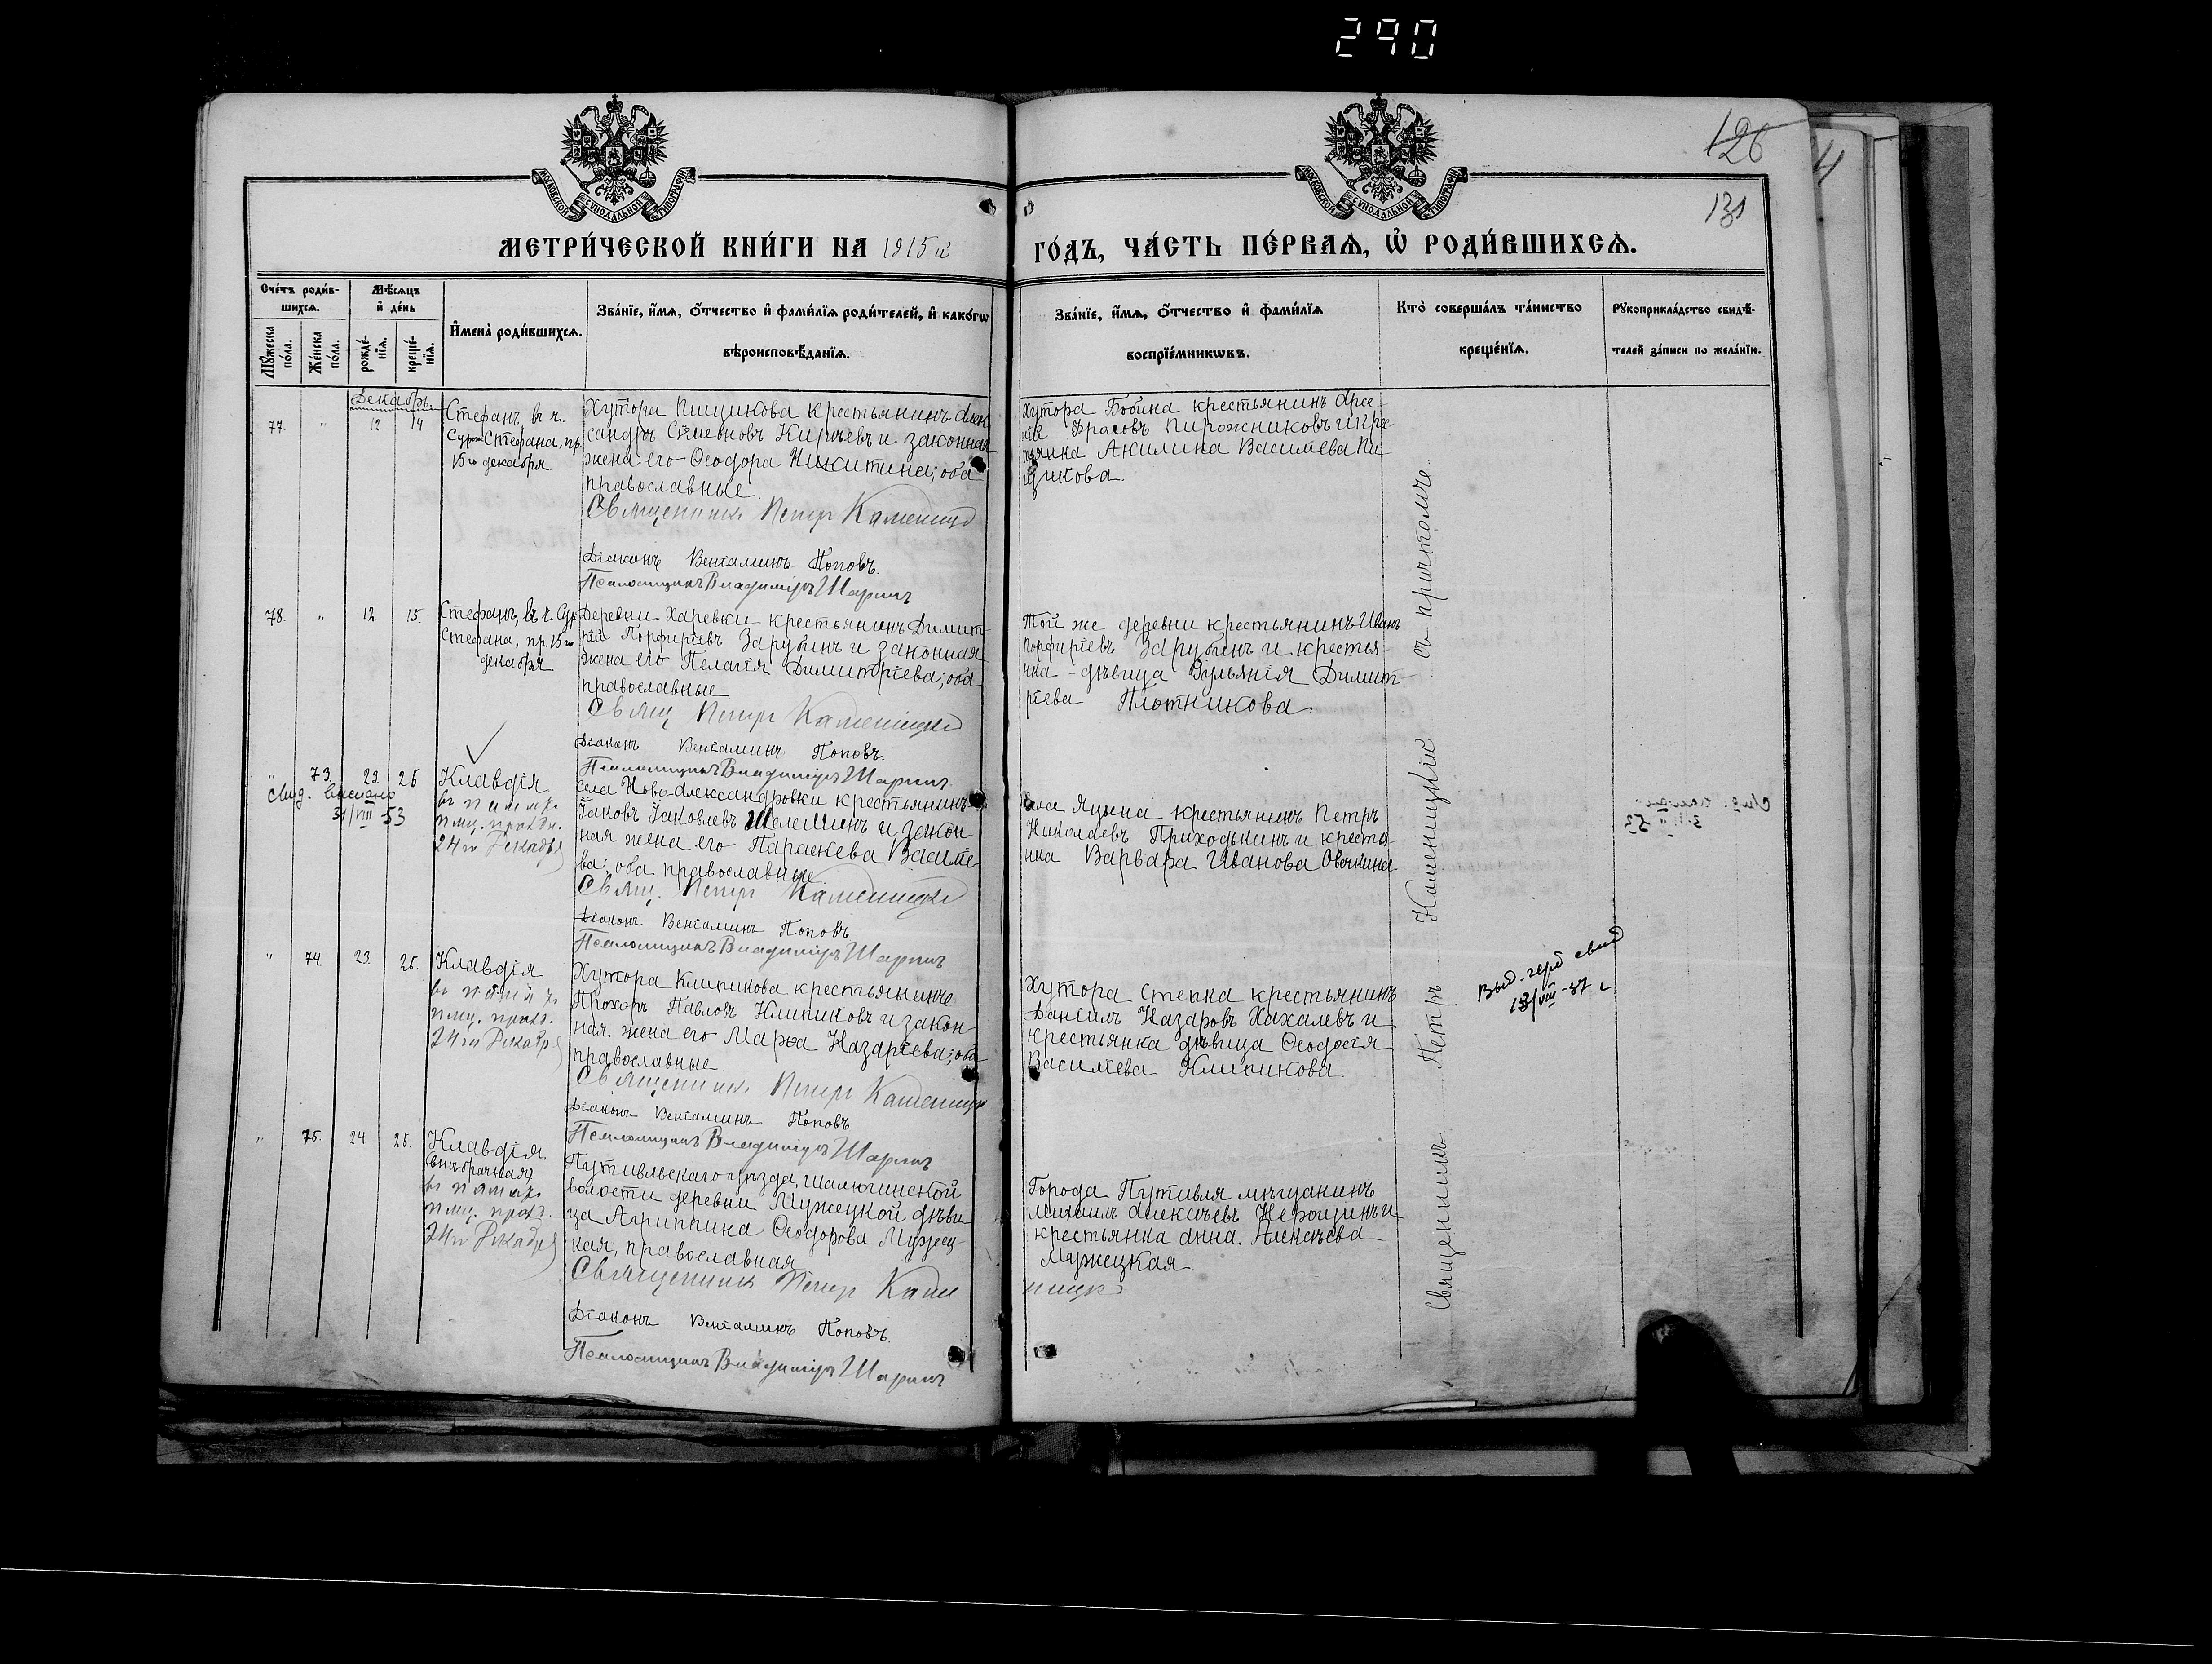 290
126
131
МОСКОВСКОЙ СѴНОДАЛЬНОЙ ТИПОГРАФІИ
МОСКОВСКОЙ СѴНОДАЛЬНОЙ ТИПОГРАФІИ
МЕТРИ́ЧЕСКОЙ КНИ́ГИ НА 1915й
ГО́ДЪ, ЧА́СТЬ ПЕ́РВАѦ, Ѽ РОДИ́ВШИХСѦ.
Сче́тъ роди́в-
шихсѧ.
Мѣ́сѧцъ
и҆ де́нь
Мꙋ́жеска по́ла.
Же́нска по́ла.
рожде́-
нїѧ.
креще́-
нїѧ.
И҆мена̀ роди́вшихсѧ.
Зва́нїе, и҆́мѧ, ѻ҆́тчество и҆ фами́лїѧ роди́телей, и҆ како́гѡ
вѣроисповѣ́данїѧ.
Зва́нїе, и҆́мѧ, ѻ҆́тчество и҆ фами́лїѧ
воспрїе́мникѡвъ.
Кто̀ соверша́лъ та́инство
креще́нїѧ.
Рꙋкоприкла́дство свидѣ́-
телей за́писи по жела́нїю.
Декабрь.
77. " 12 14
Стефанъ въ ч.
Стефана, пр.
15го декабря
Хутора Пищикова крестьянинъ Алек-
сандръ Симеоновъ Кирѣевъ и законная
жена его Ѳеодора Никитина; оба
православные.
Священникъ Петръ Каменицкій
Діаконъ Веніаминъ Поповъ.
Псаломщикъ Владиміръ Шаринъ
Хутора Бобина крестьянинъ Арсе-
ній Пирожниковъ и кре-
тьянка Акилина Васильева Пи-
щикова.
78. " 12. 15.
Стефанъ, въ ч.
Стефана, пр 15го
декабря
Деревни Харевки крестьянинъ Димит-
рій Порфиріевъ Зарубинъ и законная
жена его Пелагія Димитріева; оба
православные
Свящ Петръ Каменицкій
Діаконъ Веніаминъ Поповъ.
Псаломщикъ Владиміръ Шаринъ
Той же деревни крестьянинъ Иванъ
Порфиріевъ Зарубинъ и крестья-
нка - дѣвица Іульянія Димит-
ріева Плотникова.
" 73. 23. 25
31/VIII 53
Клавдія
въ память
24го Декабря
Села Ново-Александровки крестьянинъ
Іаковъ Іаковлевъ Шелешинъ и закон-
ная жена его Параскева Василье-
ва; оба православные.
Свящ. Петръ Каменицкій
Діаконъ Веніаминъ Поповъ
Псаломщикъ Владиміръ Шаринъ
Села Яцына крестьянинъ Петръ
Николаевъ Приходькинъ и крестья-
нка Варвара Иванова Овчкина
" 74. 23. 25.
Клавдія
24го Декабря
Хутора Клипикова крестьянинъ
Прохоръ Павловъ Клипиковъ и закон-
ная жена его Марѳа Назаріева; оба
православные
Священникъ Петръ Каменицкій
Діаконъ Веніаминъ Поповъ
Псаломщикъ Владиміръ Шаринъ
Хутора Степка крестьянинъ
Даніилъ Назаровъ Хахалевъ и
крестьянка дѣвица Ѳеодосія
Васильева Клипикова
13/VIII-37 г
" 75. 24 25.
Клавдія.
(внѣбрачная)
въ память
24го Декабря
Путивльскаго уѣзда,
волости деревни Мужецкой дѣви-
ца Агриппина Ѳеодорова Мужец-
кая, православная
Священникъ Петръ Каме
Діаконъ Веніаминъ Поповъ.
Псаломщикъ Владиміръ Шаринъ
Города Путивля мѣщанинъ
Михаилъ Алексѣевъ и
крестьянка Анна Алексѣева
Мужецкая.
ницкій
Священникъ Петръ Каменицкій съ причтомъ